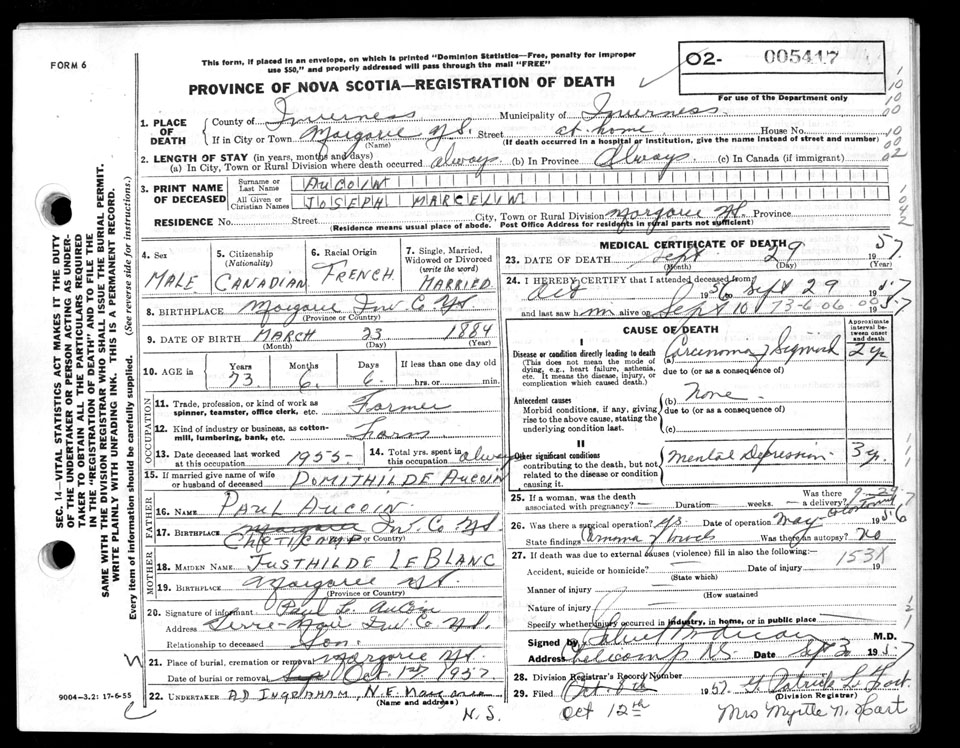 FORM 6
This form, if placed in an envelope, on which is printed "Dominion Statistics—Free, penalty for improper
use $50," and properly addressed will pass through the mail "FREE"
02- 005417
For use of the Department only
PROVINCE OF NOVA SCOTIA—REGISTRATION OF DEATH
1. PLACE OF DEATH
County of Inverness Municipality of Inverness
If in City or Town Margaree N.S. Street at home House No.
(Name) (If death occurred in a hospital or institution, give the name instead of street and number)
2. LENGTH OF STAY (in years, months and days)
(a) In City, Town or Rural Division where death occurred always (b) In Province Always (c) In Canada (if immigrant)
3. PRINT NAME OF DECEASED
Surname or Last Name AUCOIN
All Given or Christian Names JOSEPH MARCELIN
RESIDENCE No. Street City, Town or Rural Division Margaree N.S. Province
(Residence means usual place of abode. Post Office Address for residents in rural parts not sufficient)
4. Sex MALE
5. Citizenship (Nationality) CANADIAN
6. Racial Origin FRENCH
7. Single, Married, Widowed or Divorced (write the word) MARRIED
8. BIRTHPLACE Margaree Inv. Co. N.S.
(Province or Country)
9. DATE OF BIRTH MARCH 23 1884
(Month) (Day) (Year)
10. AGE in Years 73 Months 6 Days 6 If less than one day old hrs. or min.
OCCUPATION
11. Trade, profession, or kind of work as spinner, teamster, office clerk, etc. Farmer
12. Kind of industry or business, as cotton-mill, lumbering, bank, etc. Farm
13. Date deceased last worked at this occupation 1955
14. Total yrs. spent in this occupation always
15. If married give name of wife or husband of deceased DOMITHILDE AUCOIN
FATHER
16. NAME PAUL AUCOIN
17. BIRTHPLACE Margaree Inv. Co. N.S.
CHETICAMP (Province or Country)
MOTHER
18. MAIDEN NAME JUSTHILDE LEBLANC
19. BIRTHPLACE Margaree N.S.
(Province or Country)
20. Signature of informant Paul L. Aucoin
Address Terre-Noire Inv. Co. N.S.
Relationship to deceased Son
21. Place of burial, cremation or removal Margaree N.S.
Date of burial or removal Sep Oct. 1st 1957
22. UNDERTAKER A.D. INGRAHAM, N.E. Margaree
(Name and address) N.S.
MEDICAL CERTIFICATE OF DEATH
23. DATE OF DEATH Sept. 29 1957
(Month) (Day) (Year)
24. I HEREBY CERTIFY that I attended deceased from
Oct 1956 to Sept 29 1957
and last saw him alive on Sept 10 1957
73-6-06 00
CAUSE OF DEATH
Approximate interval between onset and death
I
Disease or condition directly leading to death
(This does not mean the mode of dying, e.g., heart failure, asthenia, etc. It means the disease, injury, or complication which caused death.)
(a) Carcinoma of Sigmoid 2 yr
due to (or as a consequence of)
Antecedent causes
Morbid conditions, if any, giving rise to the above cause, stating the underlying condition last.
(b) None
due to (or as a consequence of)
(c)
II
Other significant conditions
contributing to the death, but not related to the disease or condition causing it.
Mental Depression 3 yr.
25. If a woman, was the death associated with pregnancy? Duration weeks. Was there delivery?
26. Was there a surgical operation? yes Date of operation May 1956
Colostomy
State findings of bowels Was there an autopsy? No
27. If death was due to external causes (violence) fill in also the following:—
Accident, suicide or homicide? Date of injury 19
(State which)
153X
Manner of injury
(How sustained)
Nature of injury
Specify whether injury occurred in industry, in home, or in public place
Signed by M.D.
Address N.S. Date Sept 30 1957
28. Division Registrar's Record Number
29. Filed Oct. 8th 1957
(Division Registrar)
Oct 12th Mrs Myrtle N. Hart
9004-3.2: 17-6-55
SEC. 14—VITAL STATISTICS ACT MAKES IT THE DUTY
OF THE UNDERTAKER OR PERSON ACTING AS UNDER-
TAKER TO OBTAIN ALL THE PARTICULARS REQUIRED
IN THE "REGISTRATION OF DEATH" AND TO FILE THE
SAME WITH THE DIVISION REGISTRAR WHO SHALL ISSUE THE BURIAL PERMIT.
WRITE PLAINLY WITH UNFADING INK. THIS IS A PERMANENT RECORD.
Every item of information should be carefully supplied. (See reverse side for instructions.)